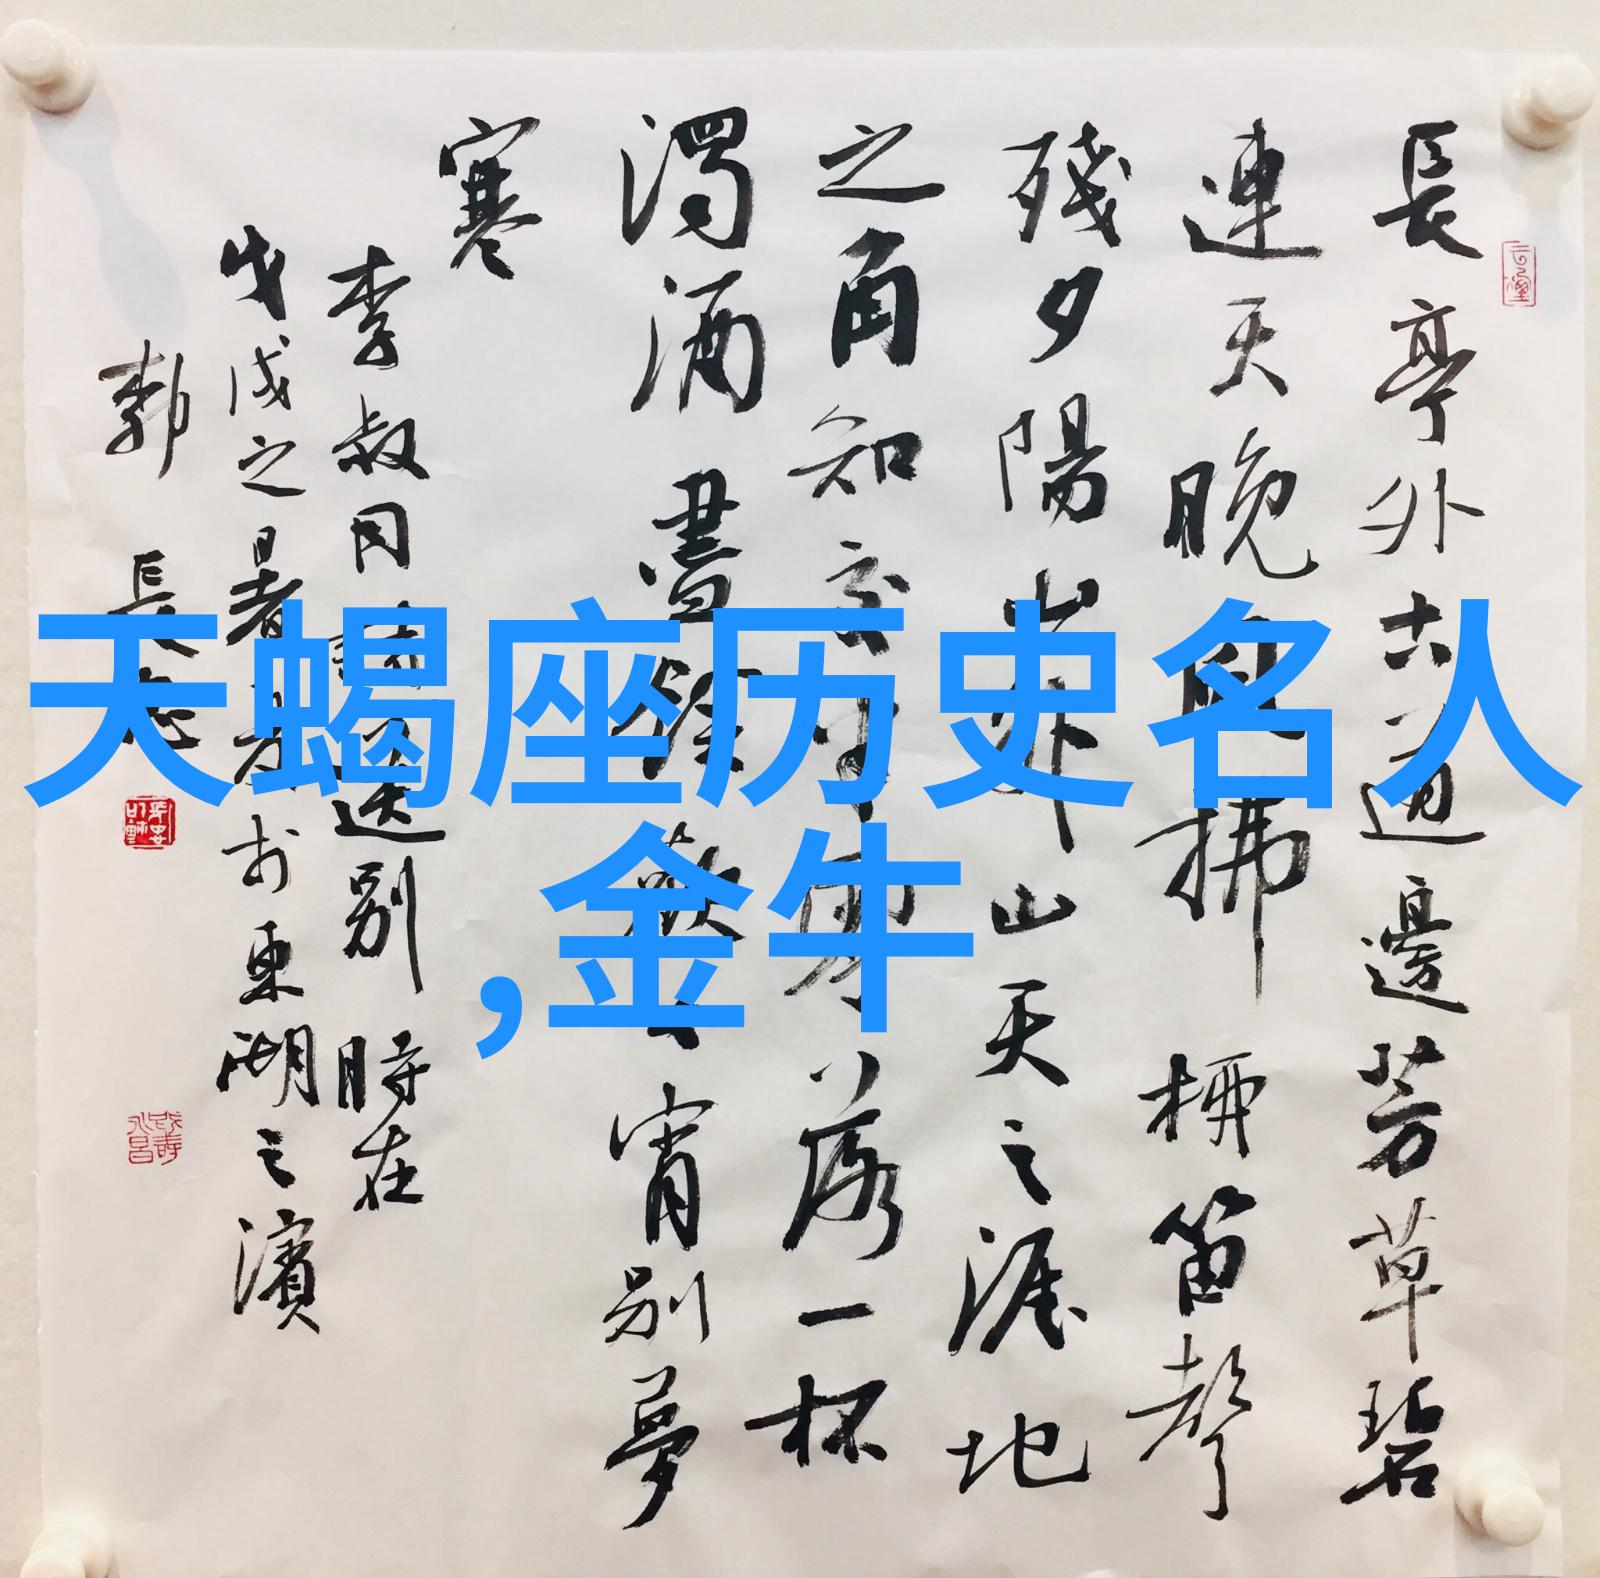 天蝎座历史名人
,金牛
長亭外古道邊芳草碧
連天晚風拂柳笛聲
殘夕陽山外山天之涯地
之角知交半零落一杯
濁酒盡餘歡今宵別夢
寒
李叔同送別 時在
戊戌之暑於東湖之濱
長